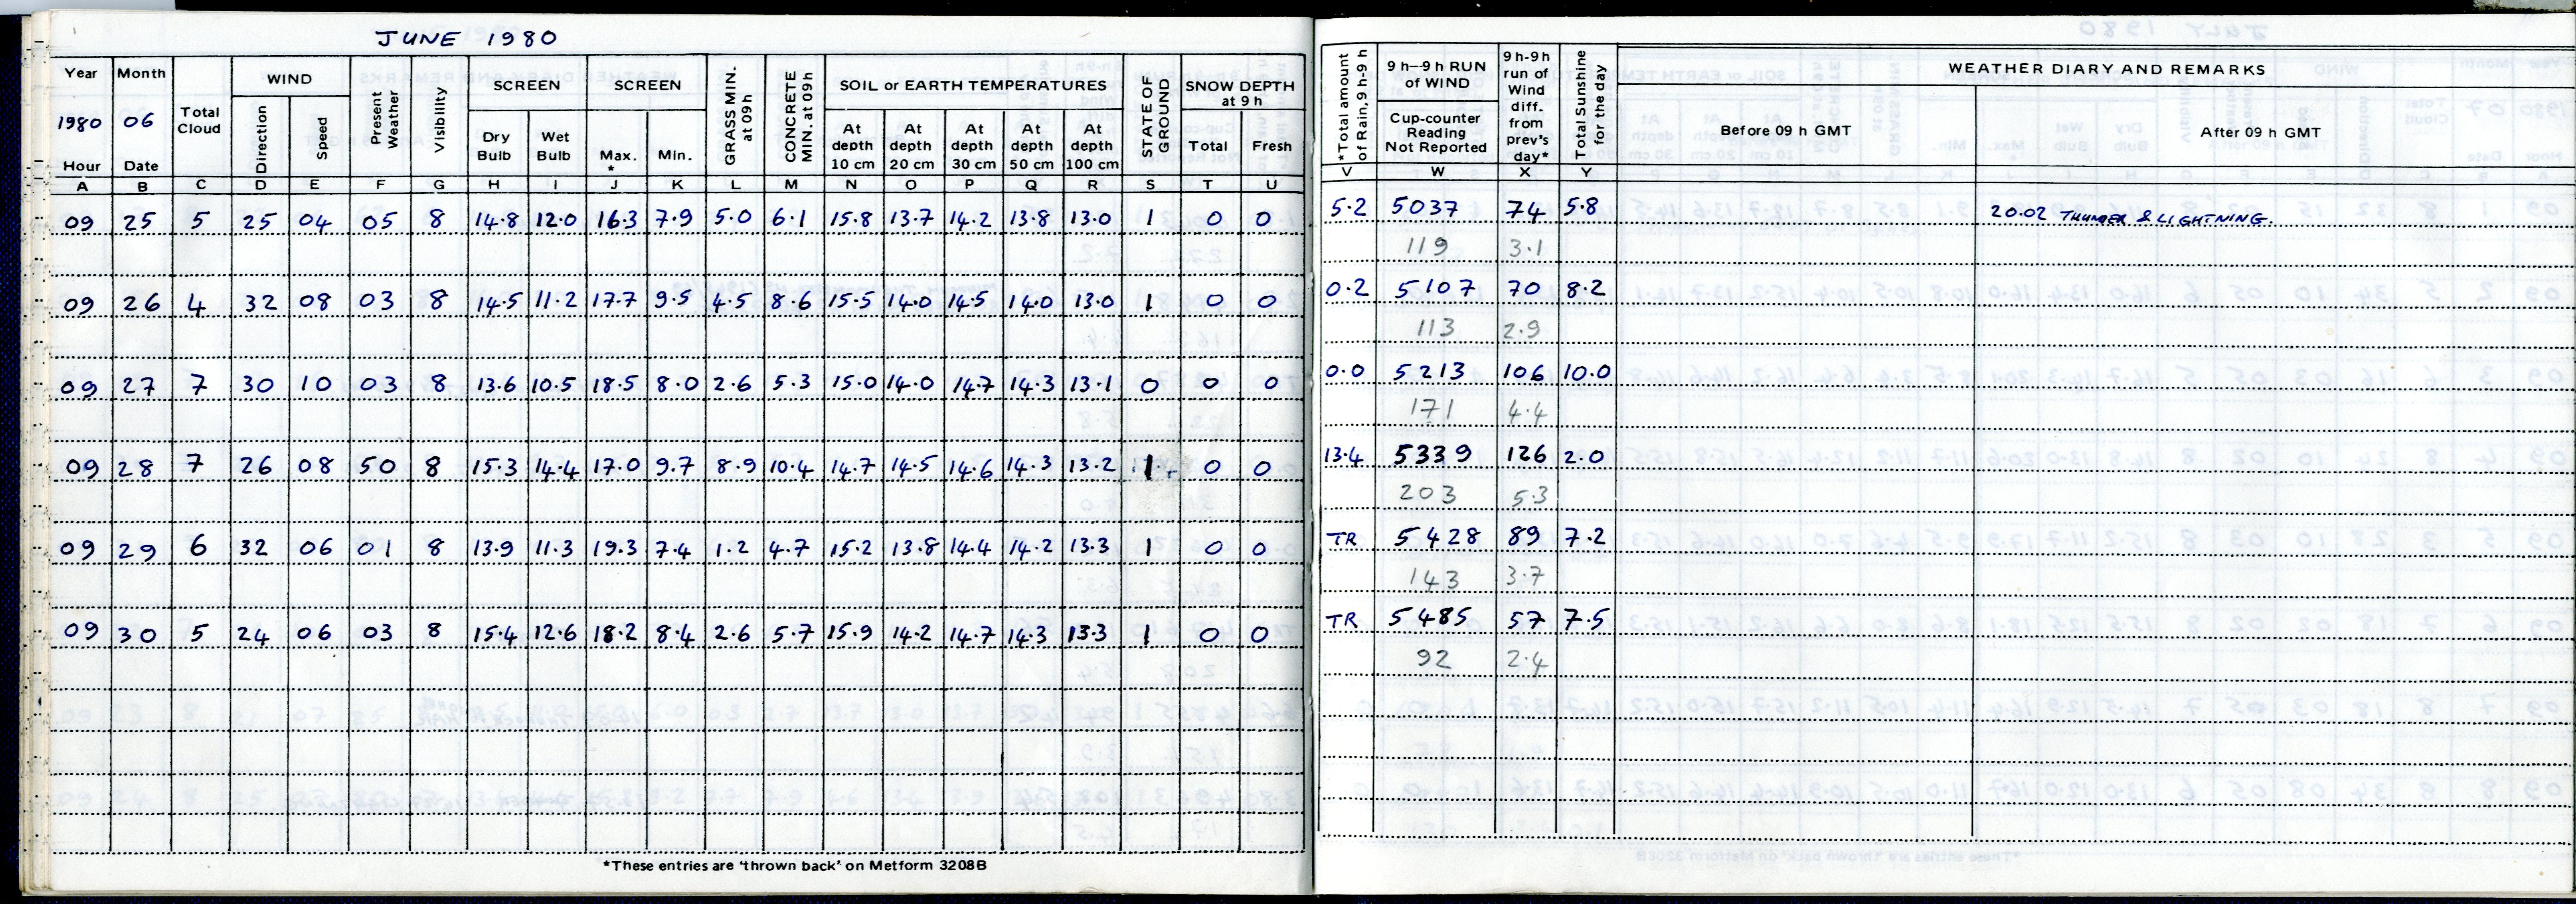 JUNE 1980
Year Month Total Cloud WIND Present Weather Visibility SCREEN SCREEN GRASS MIN. at 09h CONCRETE MIN. at 09h SOIL or EARTH TEMPERATURES STATE OF GROUND SNOW DEPTH at 9 h *Total amount of Rain, 9h-9h 9 h–9 h RUN of WIND 9 h-9h run of Wind diff. from prev's day* Total Sunshine for the day WEATHER DIARY AND REMARKS
1980 06 Direction Speed Dry Bulb Wet Bulb Max. * Min. At depth 10 cm At depth 20 cm At depth 30 cm At depth 50 cm At depth 100 cm Total Fresh Cup-counter Reading Not Reported Before 09 h GMT After 09 h GMT
Hour Date
A B C D E F G H I J K L M N O P Q R S T U V W X Y
09 25 5 25 04 05 8 14.8 12.0 16.3 7.9 5.0 6.1 15.8 13.7 14.2 13.8 13.0 1 0 0 5.2 5037 74 5.8 20.02 THUNDER & LIGHTNING.
119 3.1
09 26 4 32 08 03 8 14.5 11.2 17.7 9.5 4.5 8.6 15.5 14.0 14.5 14.0 13.0 1 0 0 0.2 5107 70 8.2
113 2.9
09 27 7 30 10 03 8 13.6 10.5 18.5 8.0 2.6 5.3 15.0 14.0 14.7 14.3 13.1 0 0 0 0.0 5213 106 10.0
171 4.4
09 28 7 26 08 50 8 15.3 14.4 17.0 9.7 8.9 10.4 14.7 14.5 14.6 14.3 13.2 1 0 0 13.4 5339 126 2.0
203 5.3
09 29 6 32 06 01 8 13.9 11.3 19.3 7.4 1.2 4.7 15.2 13.8 14.4 14.2 13.3 1 0 0 TR 5428 89 7.2
143 3.7
09 30 5 24 06 03 8 15.4 12.6 18.2 8.4 2.6 5.7 15.9 14.2 14.7 14.3 13.3 1 0 0 TR 5485 57 7.5
92 2.4
*These entries are 'thrown back' on Metform 3208B